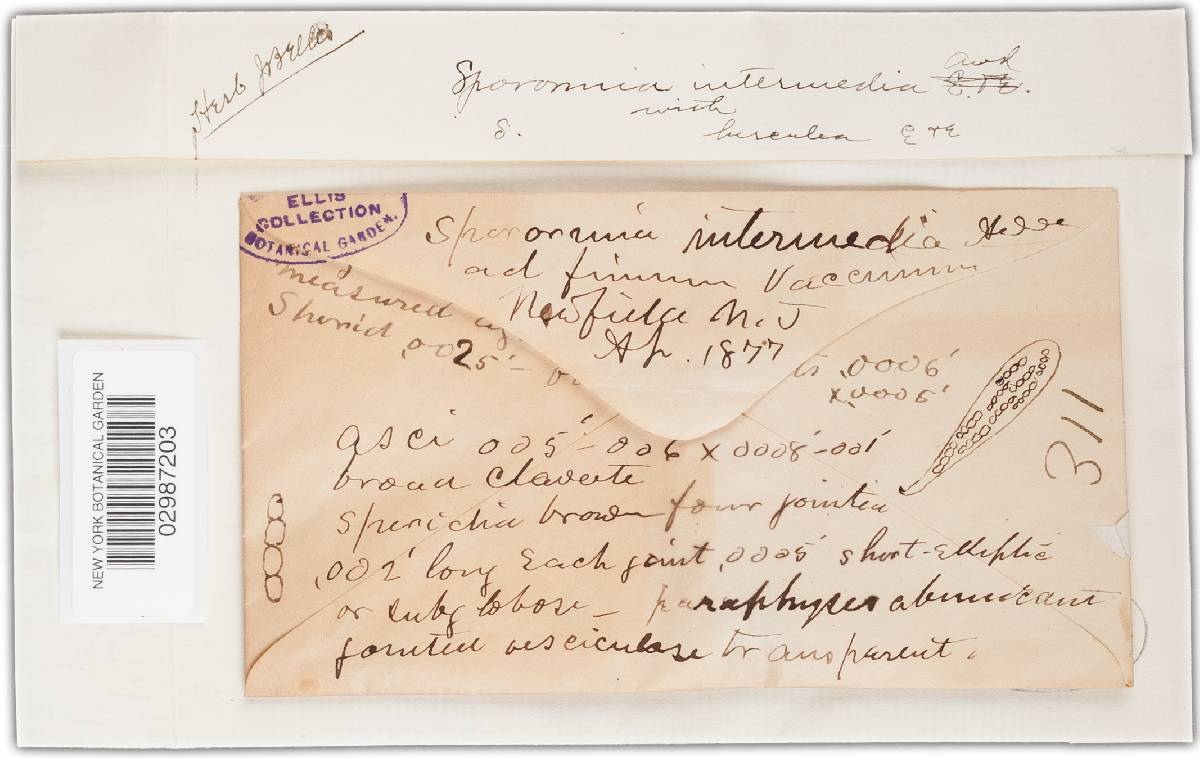 Herb JBEllis
Sporormia intermedia Awd
with
S. herculea E & E
ELLIS
COLLECTION
BOTANICAL GARDEN.
Sporormia intermedia
ad fimum Vaccinum
Newfield N.J
Ap. 1877
measured
Sporid .0025' –
.0006'
x .0005'
311
asci 005'–006 x 0008'–001'
broad Clavate
Sporidia brown four jointed
.002' long Each joint .0005' short-Elliptic
or subglobose – paraphyses abundant
jointed vesciculose transparent.
NEW YORK BOTANICAL GARDEN
02987203